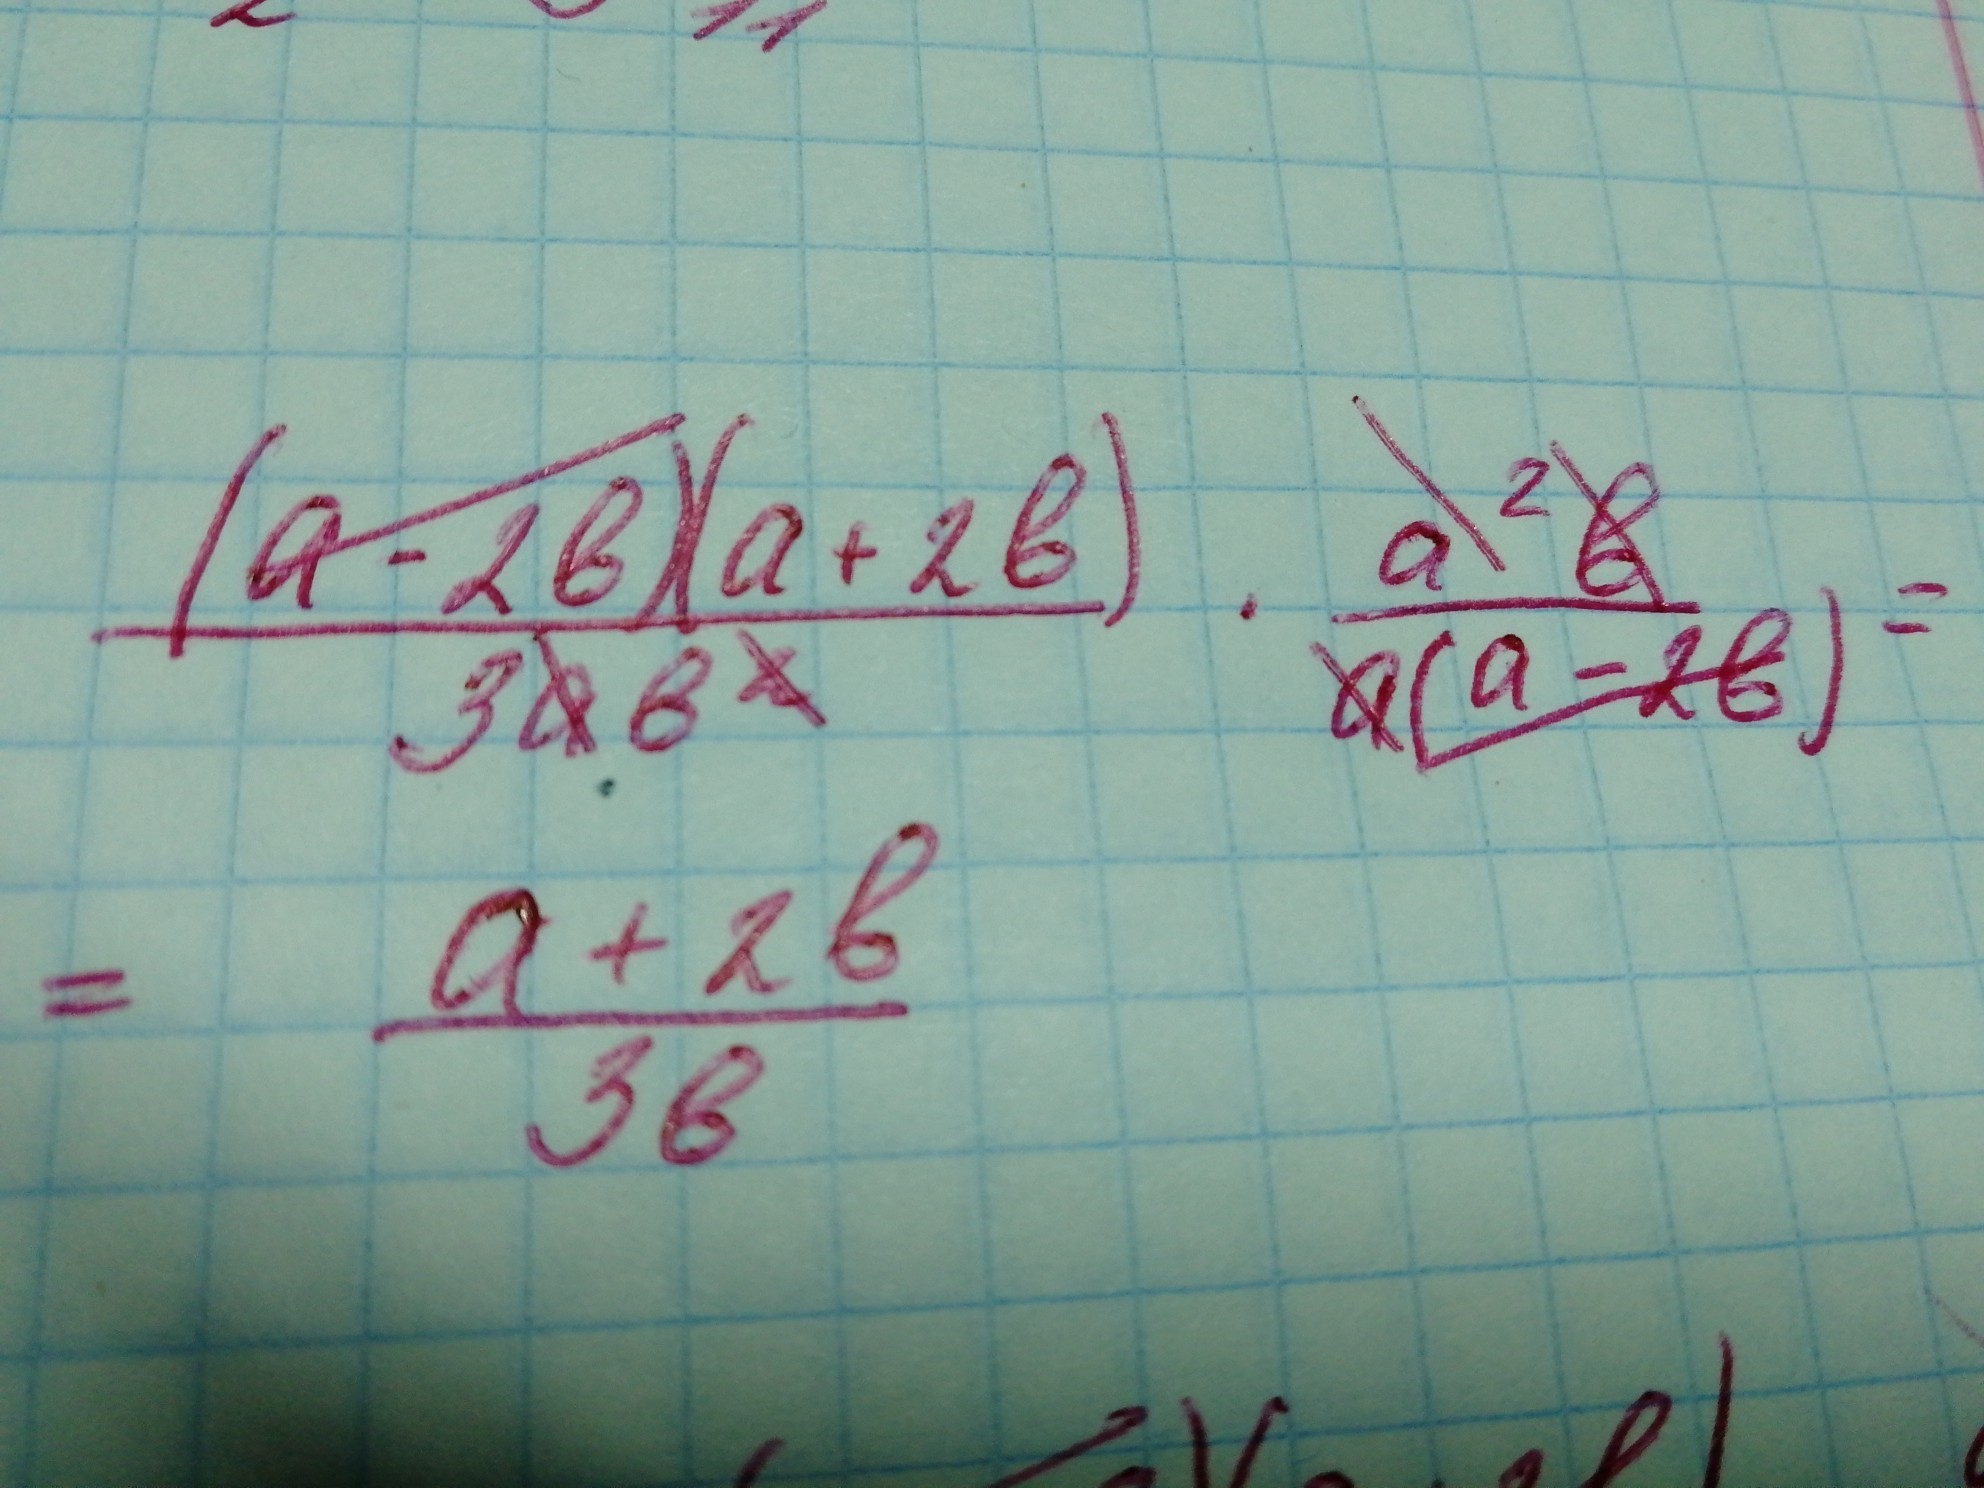 2 11
(a - 2b)(a + 2b) / 3ab² · a²b / a(a - 2b) =
= a + 2b / 3b